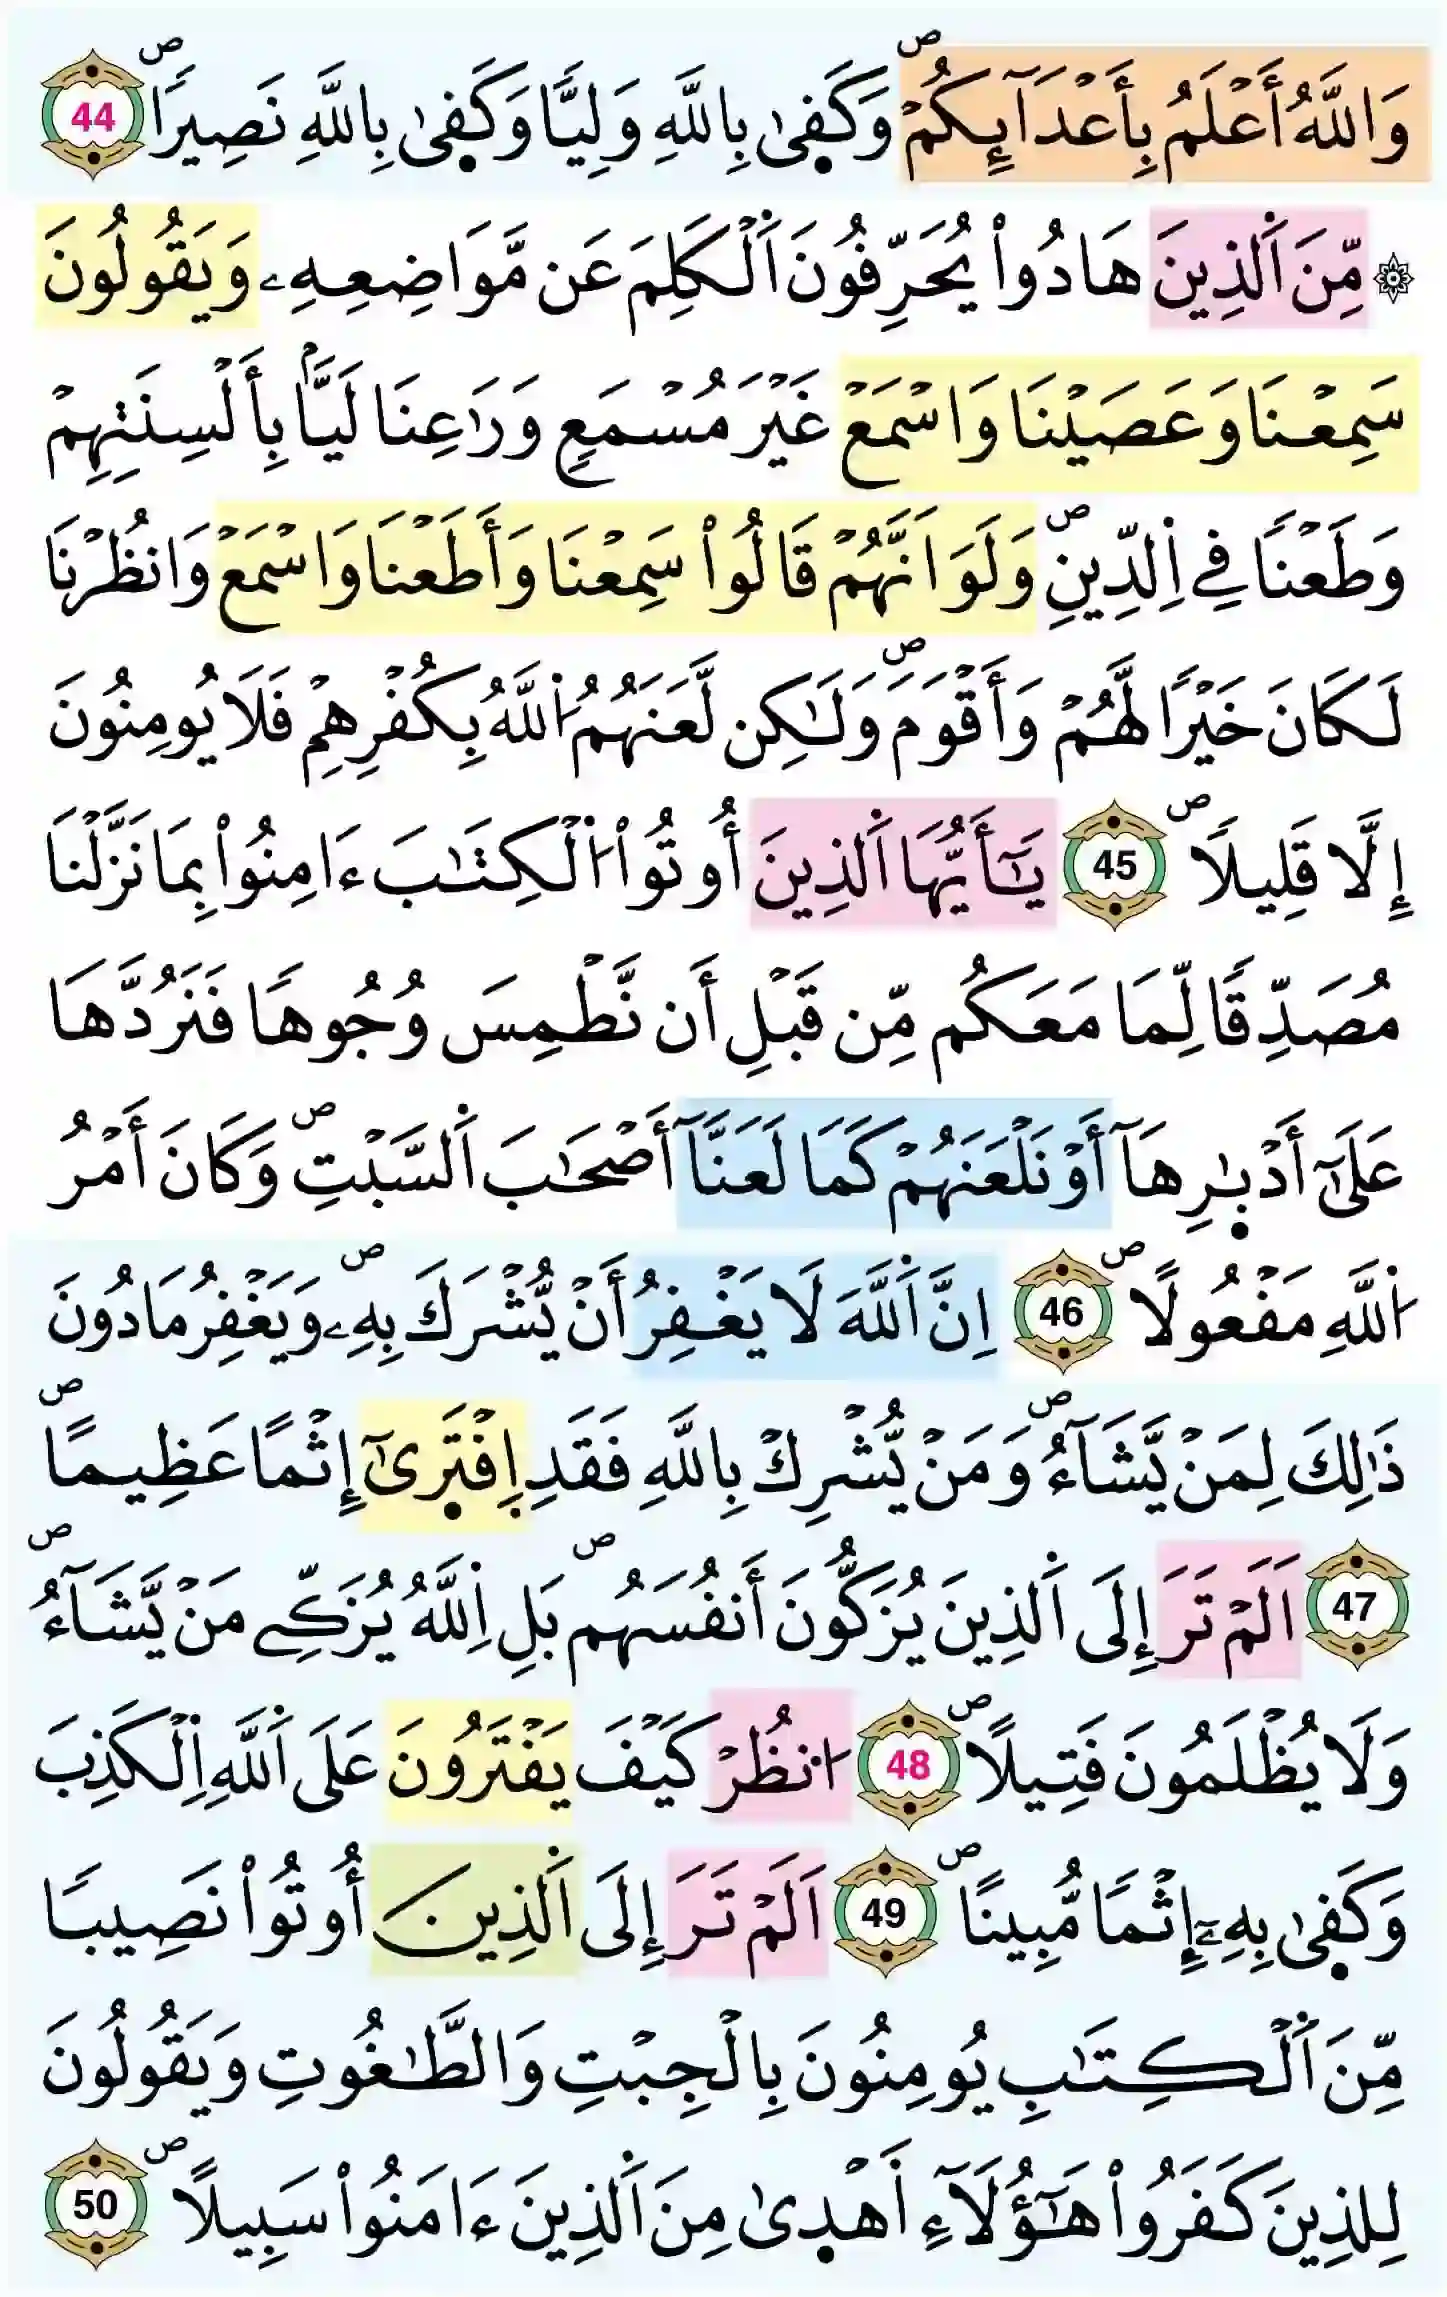 وَاللَّهُ أَعْلَمُ بِأَعْدَآئِكُمْۖ وَكَفَىٰ بِاللَّهِ وَلِيّٗا وَكَفَىٰ بِاللَّهِ نَصِيرٗاۖ 44
۞ مِّنَ اَلذِينَ هَادُواْ يُحَرِّفُونَ اَلْكَلِمَ عَن مَّوَاضِعِهِۦ وَيَقُولُونَ
سَمِعْنَا وَعَصَيْنَا وَاسْمَعْ غَيْرَ مُسْمَعٖ وَرَٰعِنَا لَيّاَۢ بِأَلْسِنَتِهِمْ
وَطَعْناٗ فِے اِلدِّينِۖ وَلَوَ اَنَّهُمْ قَالُواْ سَمِعْنَا وَأَطَعْنَا وَاسْمَعْ وَانظُرْنَا
لَكَانَ خَيْراٗ لَّهُمْ وَأَقْوَمَۖ وَلَٰكِن لَّعَنَهُمُ اُللَّهُ بِكُفْرِهِمْ فَلَا يُومِنُونَ
إِلَّا قَلِيلاٗۖ 45 يَٰٓأَيُّهَا اَلذِينَ أُوتُواْ اُلْكِتَٰبَ ءَامِنُواْ بِمَا نَزَّلْنَا
مُصَدِّقاٗ لِّمَا مَعَكُم مِّن قَبْلِ أَن نَّطْمِسَ وُجُوهاٗ فَنَرُدَّهَا
عَلَىٰٓ أَدْبٰ۪رِهَآ أَوْ نَلْعَنَهُمْ كَمَا لَعَنَّآ أَصْحَٰبَ اَلسَّبْتِۖ وَكَانَ أَمْرُ
اُللَّهِ مَفْعُولاًۖ 46 اِنَّ اَللَّهَ لَا يَغْفِرُ أَنْ يُّشْرَكَ بِهِۦۖ وَيَغْفِرُ مَا دُونَ
ذَٰلِكَ لِمَنْ يَّشَآءُۖ وَمَنْ يُّشْرِكْ بِاللَّهِ فَقَدِ اِ۪فْتَر۪ىٰٓ إِثْماً عَظِيماًۖ
47 اَلَمْ تَرَ إِلَى اَلذِينَ يُزَكُّونَ أَنفُسَهُمۖ بَلِ اِللَّهُ يُزَكِّے مَنْ يَّشَآءُۖ
وَلَا يُظْلَمُونَ فَتِيلاًۖ 48 اُنظُرْ كَيْفَ يَفْتَرُونَ عَلَى اَللَّهِ اِلْكَذِبَ
وَكَف۪ىٰ بِهِۦٓ إِثْماٗ مُّبِيناًۖ 49 اَلَمْ تَرَ إِلَى اَلذِينَ أُوتُواْ نَصِيباٗ
مِّنَ اَلْكِتَٰبِ يُومِنُونَ بِالْجِبْتِ وَالطَّٰغُوتِ وَيَقُولُونَ
لِلذِينَ كَفَرُواْ هَٰٓؤُلَآءِ اَ۬هْد۪ىٰ مِنَ اَلذِينَ ءَامَنُواْ سَبِيلاًۖ 50